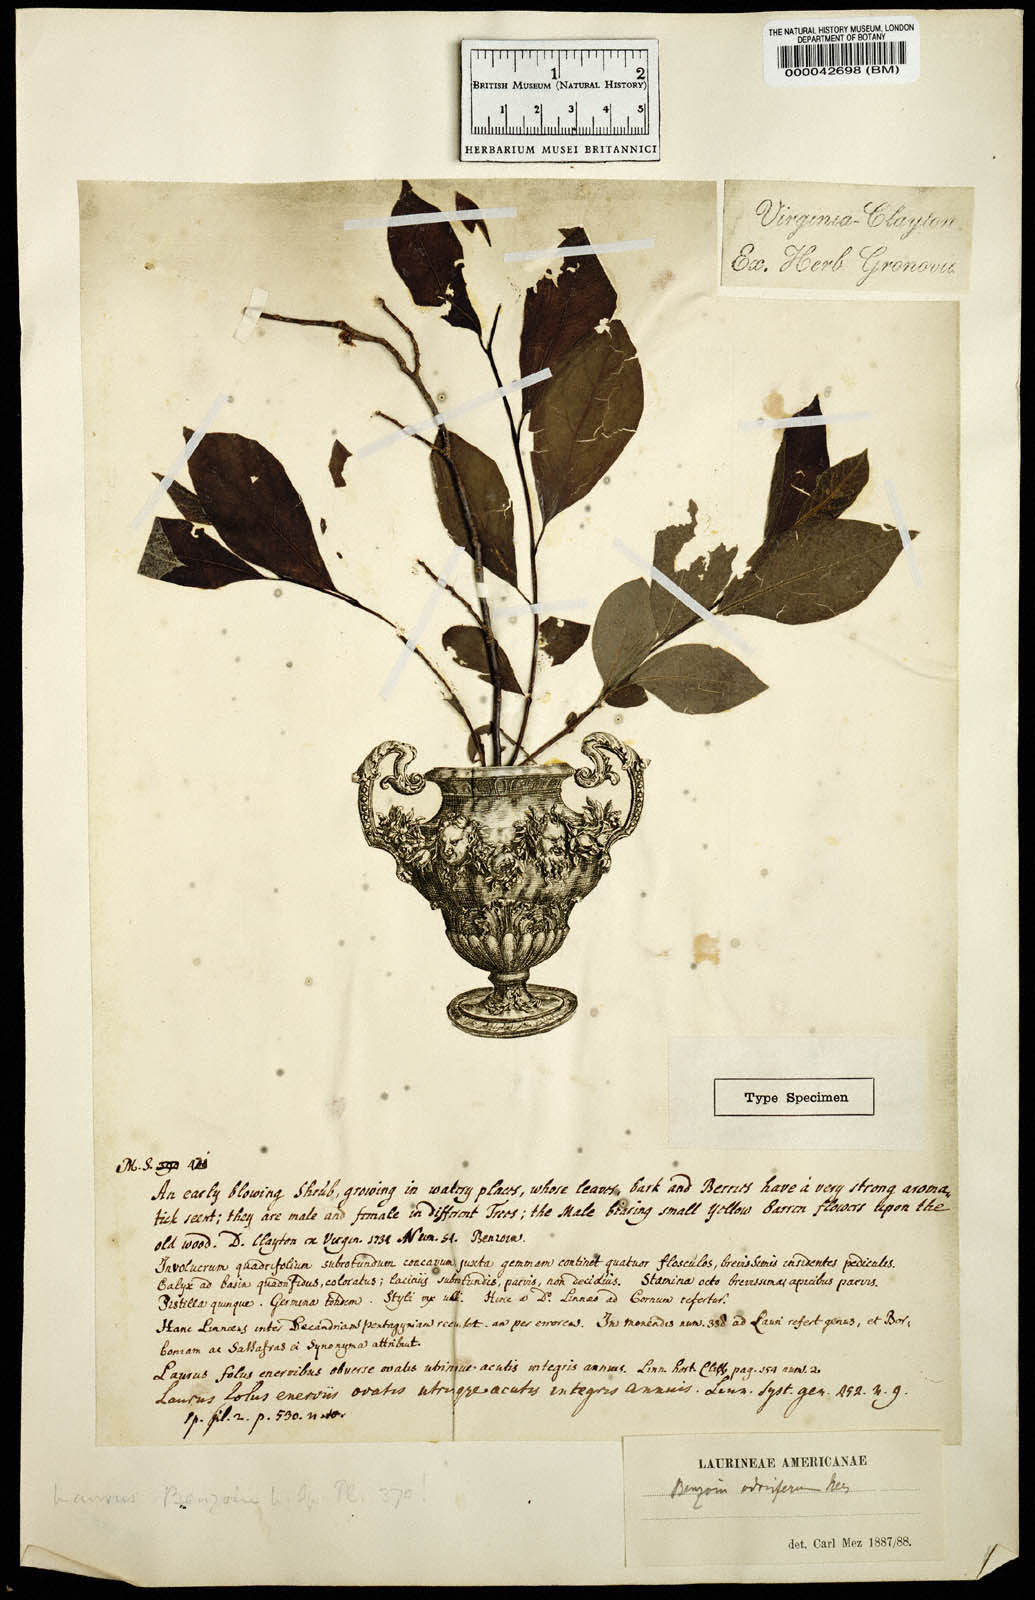 THE NATURAL HISTORY MUSEUM, LONDON
DEPARTMENT OF BOTANY
000042698 (BM)
1 2
BRITISH MUSEUM (NATURAL HISTORY)
1 2 3 4 5
HERBARIUM MUSEI BRITANNICI
Virginia-Clayton
Ex. Herb Gronovii
Type Specimen
M. S.
An early blowing Shrub, growing in watery places, whose leaves, bark and Berries have a very strong aroma-
tick scent; they are male and female in different Trees; the Male bearing small yellow barren flowers upon the
old wood. D. Clayton ex Virgin. 1734 Num. 51. Benzoin.
Involucrum quadrifolium subrotundum concavum juxta gemmam continet quatuor flosculos, brevissimis insidentes pediculis.
Calyx ad basin quadrifidus, coloratus; laciniis subrotundis, parvis, non deciduis. Stamina octo brevissima apicibus parvis.
Pistilla quinque. Germina totidem. Styli vix ulli. Hinc a Dr. Linnaeo ad Cornum refertur.
Hanc Linnaeus inter Decandriam pentagyniam recenset. an per errorem. In monendis num. ad Lauri refert genus, et Bor-
boniam ac Sassafras ei Synonyma attribut.
Laurus foliis enervibus obverse ovatis utrinque acutis integris annuis. Linn. hort. Cliff. pag. 154 num. 2.
Laurus foliis enerviis ovatis utrinque acutis integris annuis. Linn. Syst. gen. 252. n. 9.
Sp. pl. 2. p. 530. n
Laurus Benzoin L. Sp. Pl. 370!
LAURINEAE AMERICANAE
Benzoin odoriferum Nees
det. Carl Mez 1887/88.